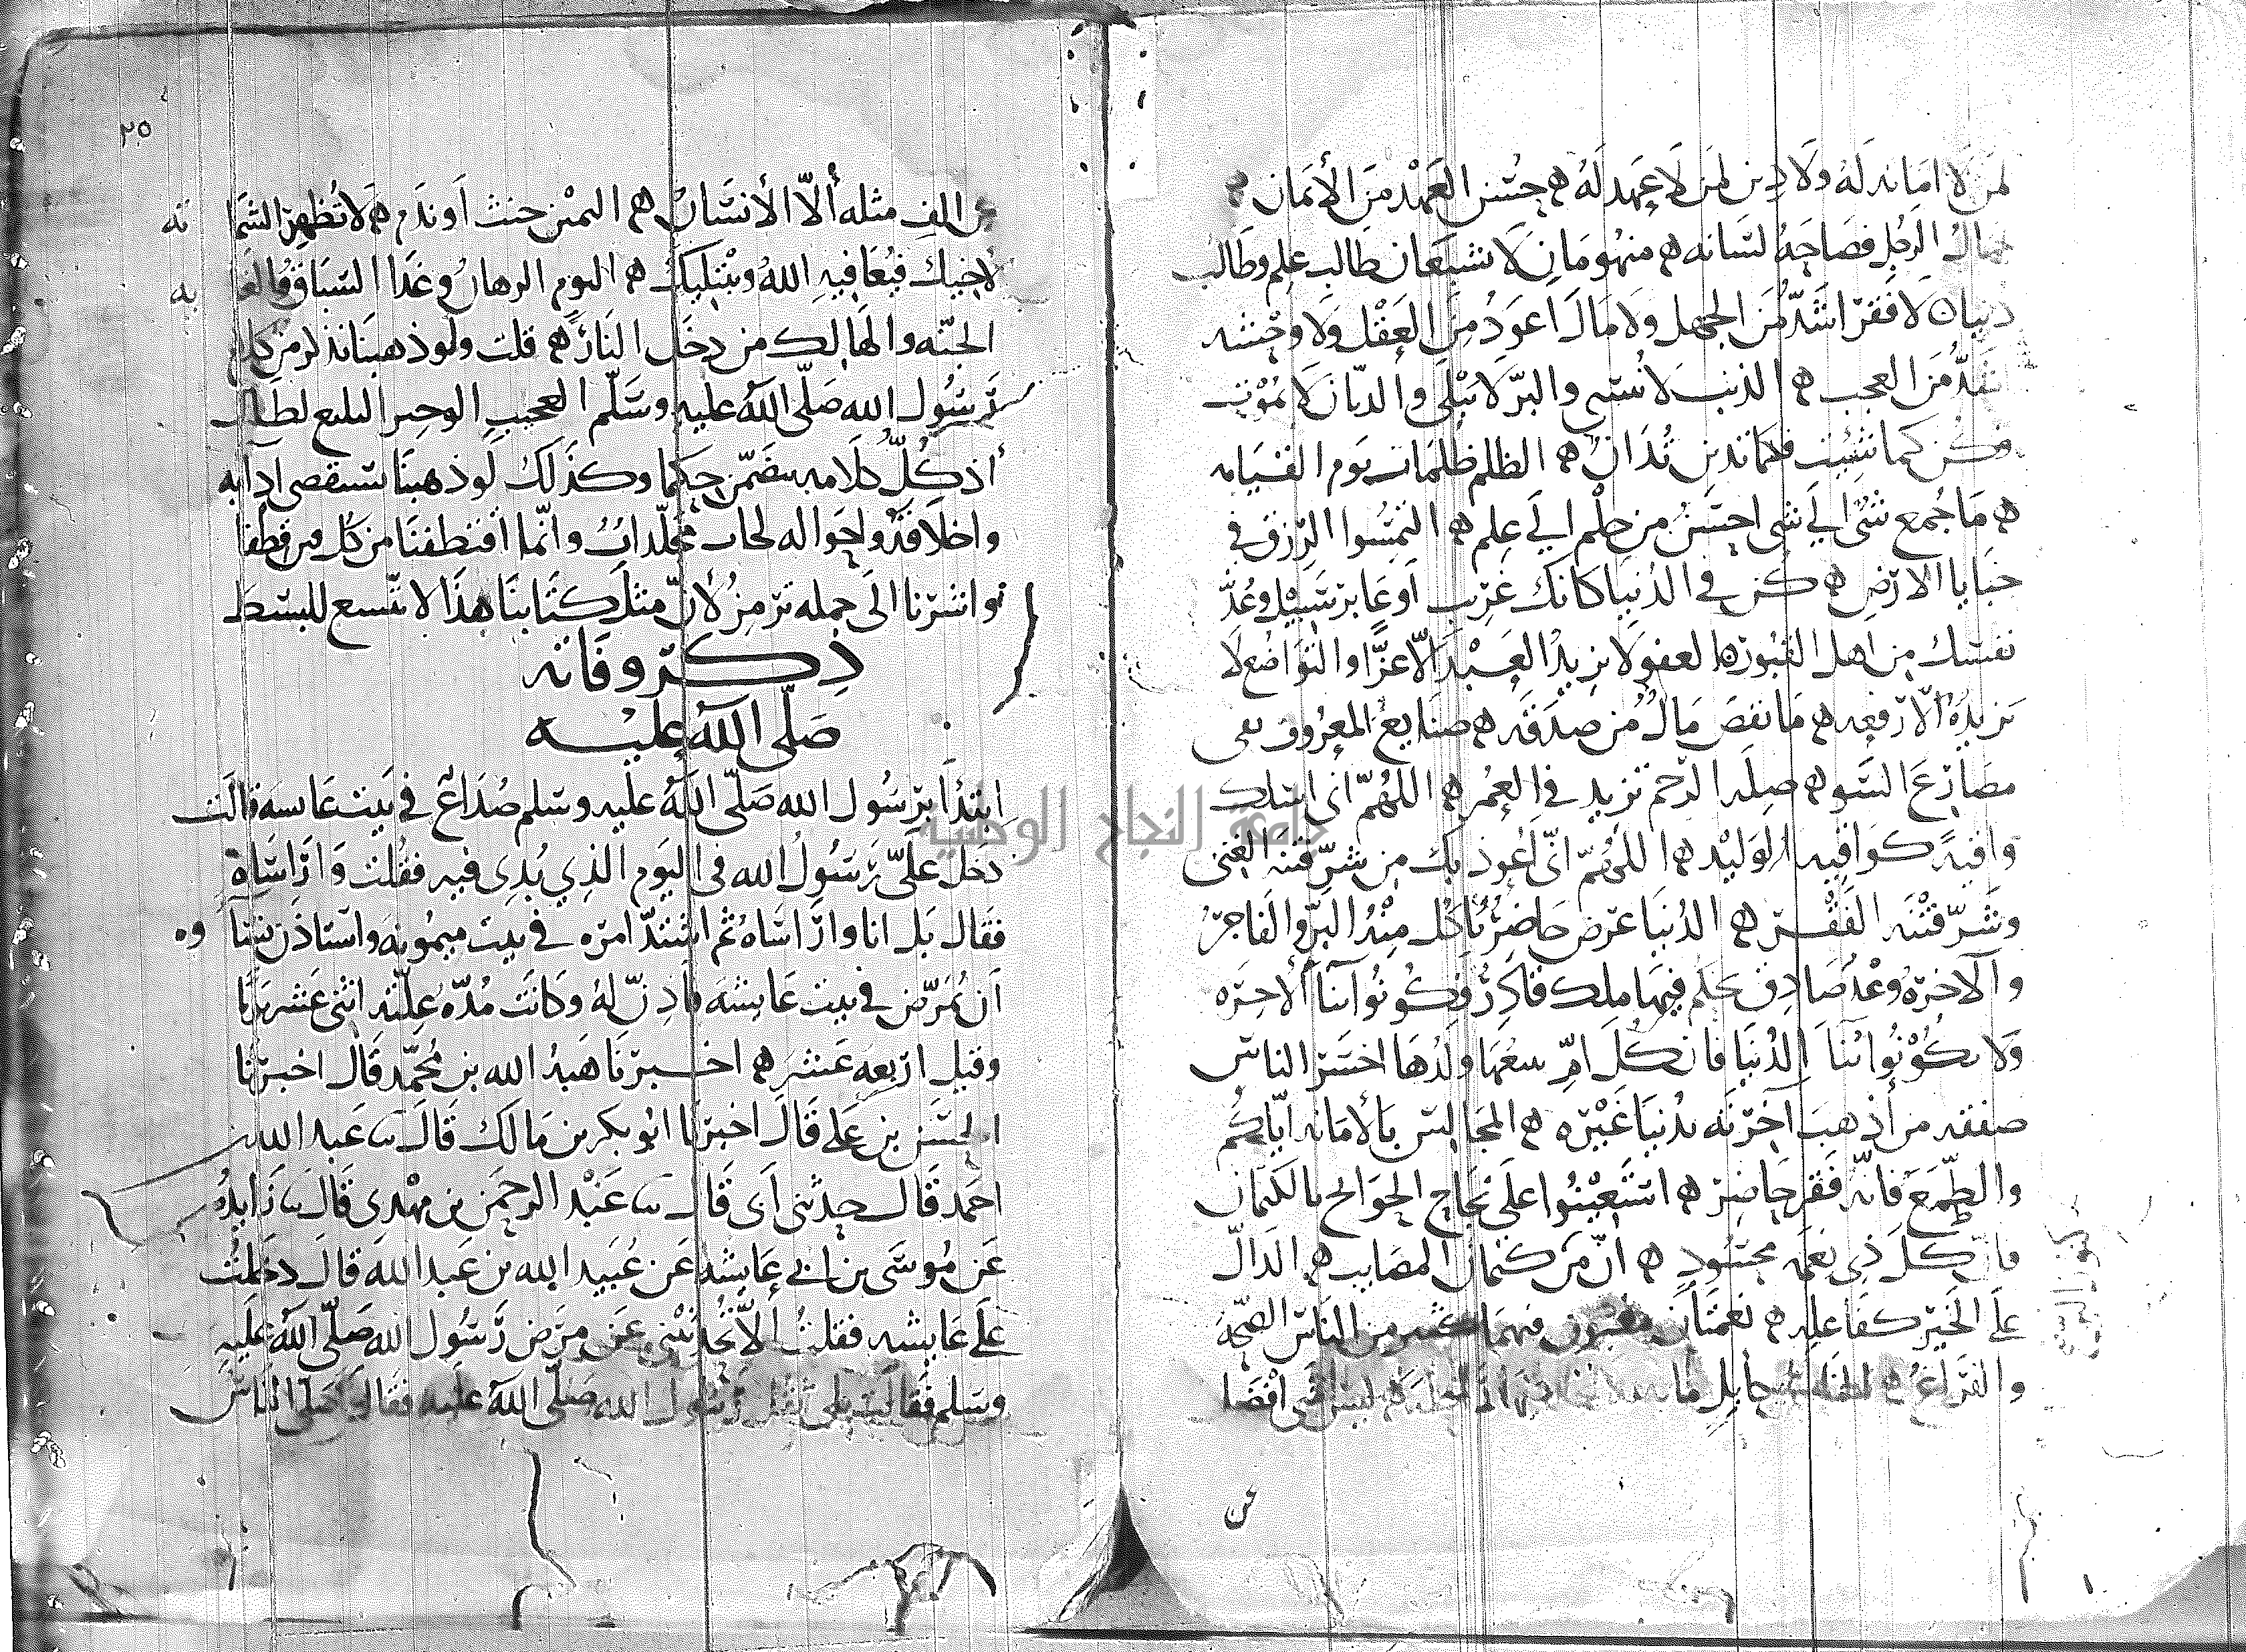 لمن لا امانه له ولا دين لمن لا عهد له ه حسن العهد من الأيمان ه
جمال الرجل فصاحه لسانه ه منهومان لا يشبعان طالب علم وطالب
دنيا ه لا فقر اشد من الجهل ولا مال اعود من العقل ولا وحشه
اشد من العجب ه الذنب لا ينسى والبر لا يبلى والديان لا يموت
فكن كما شئت فكما تدين تدان ه الظلم ظلمات يوم القيامه
ه ما جمع شي الي شي احسن من حلم الي علم ه التمسوا الرزق في
خبايا الارض ه كن في الدنيا كانك غريب او عابر سبيل وعد
نفسك من اهل القبور ه العفو لا يزيد العبد الا عزا والتواضع لا
يزيده الا رفعه ه ما نقص مال من صدقه ه صنايع المعروف تقى
مصارع السو ه صله الرحم تزيد في العمر ه اللهم انى اسلك
واقيه كواقيه الوليد ه اللهم انى اعوذ بك من شر فتنه الغنى
وشر فتنه الفقر ه الدنيا عرض حاضر ياكل منه البر والفاجر
والاخره وعد صادق يحكم فيها ملك قادر فكونوا ابنا الاخره
ولا تكونوا ابنا الدنيا فان كل ام يتبعها ولدها اخسر الناس
صفقه من أذهب آخرته بدنيا غيره ه المجالس بالأمانه اياكم
والطمع فانه فقر حاضر ه استعينوا على نجاح الحوايج بالكتمان
فان كل ذي نعمه محسود ه ان من كتمان المصايب ه الدال
على الخير كفاعله ه نعمتان مغبون فيهما كثير من الناس الصحه
والفراغ ه ليس شى افضل
من
٢٥
من الف مثله ألا الأنسان ه اليمين حنث أو ندم ه لا تظهر الشما ته
لاخيك فيعافيه الله ويبتليك ه اليوم الرهان وغدا السباق والغا يه
الجنه والهالك من دخل النار ه قلت ولو ذهبنا نذكر من كلام
رسول الله صلى الله عليه وسلم العجيب الوجيز البليغ لطال
أذ كل كلامه يتضمن حكما وكذلك لو ذهبنا نستقصى ادابه
واخلاقه واحواله لجات مجلدات وانما اقتطفنا من كل فن قطفا
واشرنا الى جمله ترمز لأن مثل كتابنا هذا لا يتسع للبسط
ذكر وفاته
صلى الله عليه
ابتدأ برسول الله صلى الله عليه وسلم صداع في بيت عايشه قالت
دخل على رسول الله فى اليوم الذي بدى فيه فقلت وا رأساه
فقال بل انا وا رأساه ثم اشتد امره في بيت ميمونه واستاذن نسا وه
أن يمرض في بيت عايشه فأذن له وكانت مده علته اثنى عشر يوما
وقيل اربعه عشر ه اخبرنا هبه الله بن محمد قال اخبرنا
الحسن بن على قال اخبرنا ابو بكر بن مالك قال ثنا عبد الله بن
احمد قال حدثنى أبى قال ثنا عبد الرحمن بن مهدى قال ثنا زايده
عن موسى بن ابى عايشه عن عبيد الله بن عبد الله قال دخلت
على عايشه فقلت ألا تحدثينى عن مرض رسول الله صلى الله عليه
وسلم فقالت بلى ثقل رسول الله صلى الله عليه فقال أصلى الناس
جامعة النجاح الوطنية